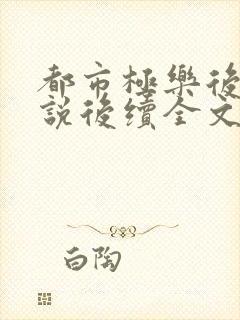 都市極樂後
說後續全文
白陶